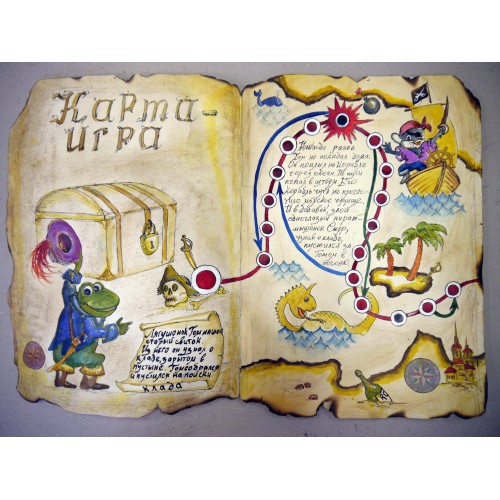 Карта-
игра
Лягушонок Том нашёл
старый свиток
Из него он узнал о
кладе, зарытом в
пустыне. Том собрался
и пустился на поиски
клада
Никогда ранее
Том не покидал дома.
Он поплыл на корабле
через океан. По пути
попал в шторм. Его
корабль чуть не прогло-
тило морское чудище.
И в добавок, злой
одноглазый пират-
мышонок Сыр,
узнав о кладе,
пустился за
Томом в
погоню